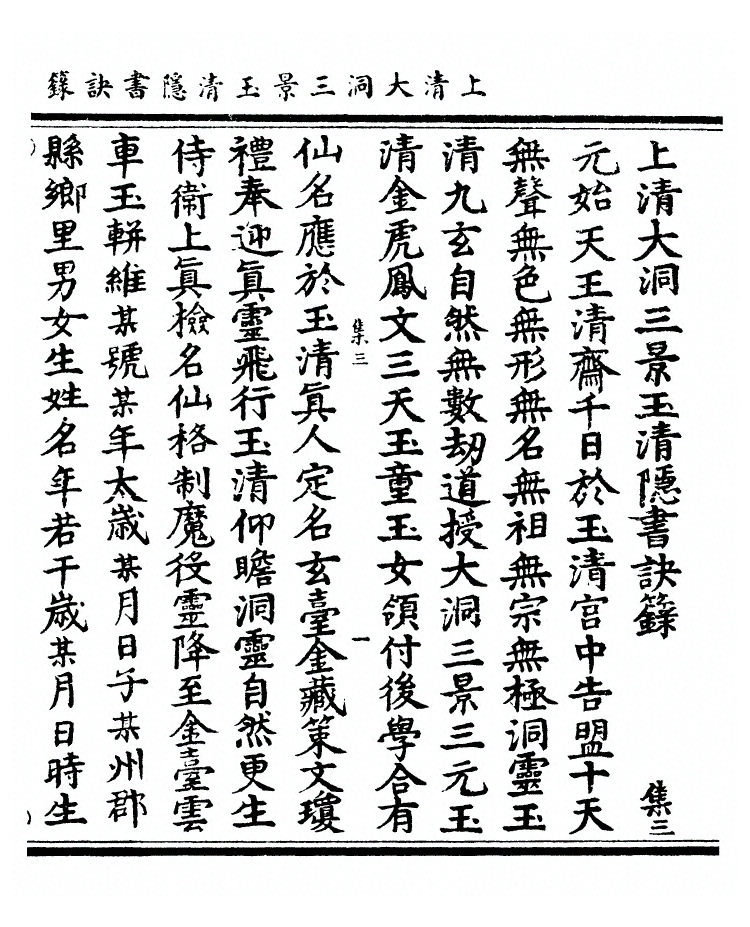 上清大洞三景玉清隱書訣籙
上清大洞三景玉清隱書訣籙 集三
元始天王清齋千日於玉清宮中告盟十天
無聲無色無形無名無祖無宗無極洞靈玉
清九玄自然無數劫道授大洞三景三元玉
清金虎鳳文三天玉童玉女領付後學合有
集三 一
仙名應於玉清眞人定名玄臺金藏策文瓊
禮奉迎眞靈飛行玉清仰瞻洞靈自然更生
侍衞上眞檢名仙格制魔役靈降至金臺雲
車玉輧維某號某年太歲某月日子某州郡
縣鄉里男女生姓名年若干歲某月日時生